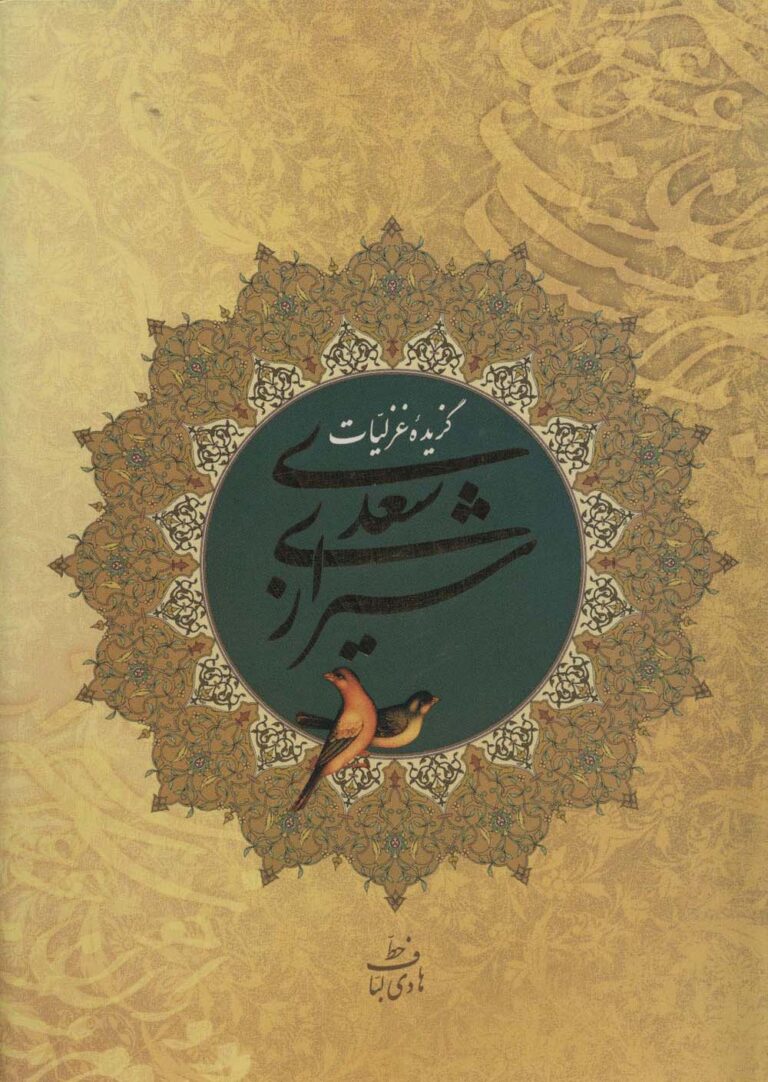 گزیدهٔ غزلیّات
سعدی
شیرازی
خط
هادی لبّاف